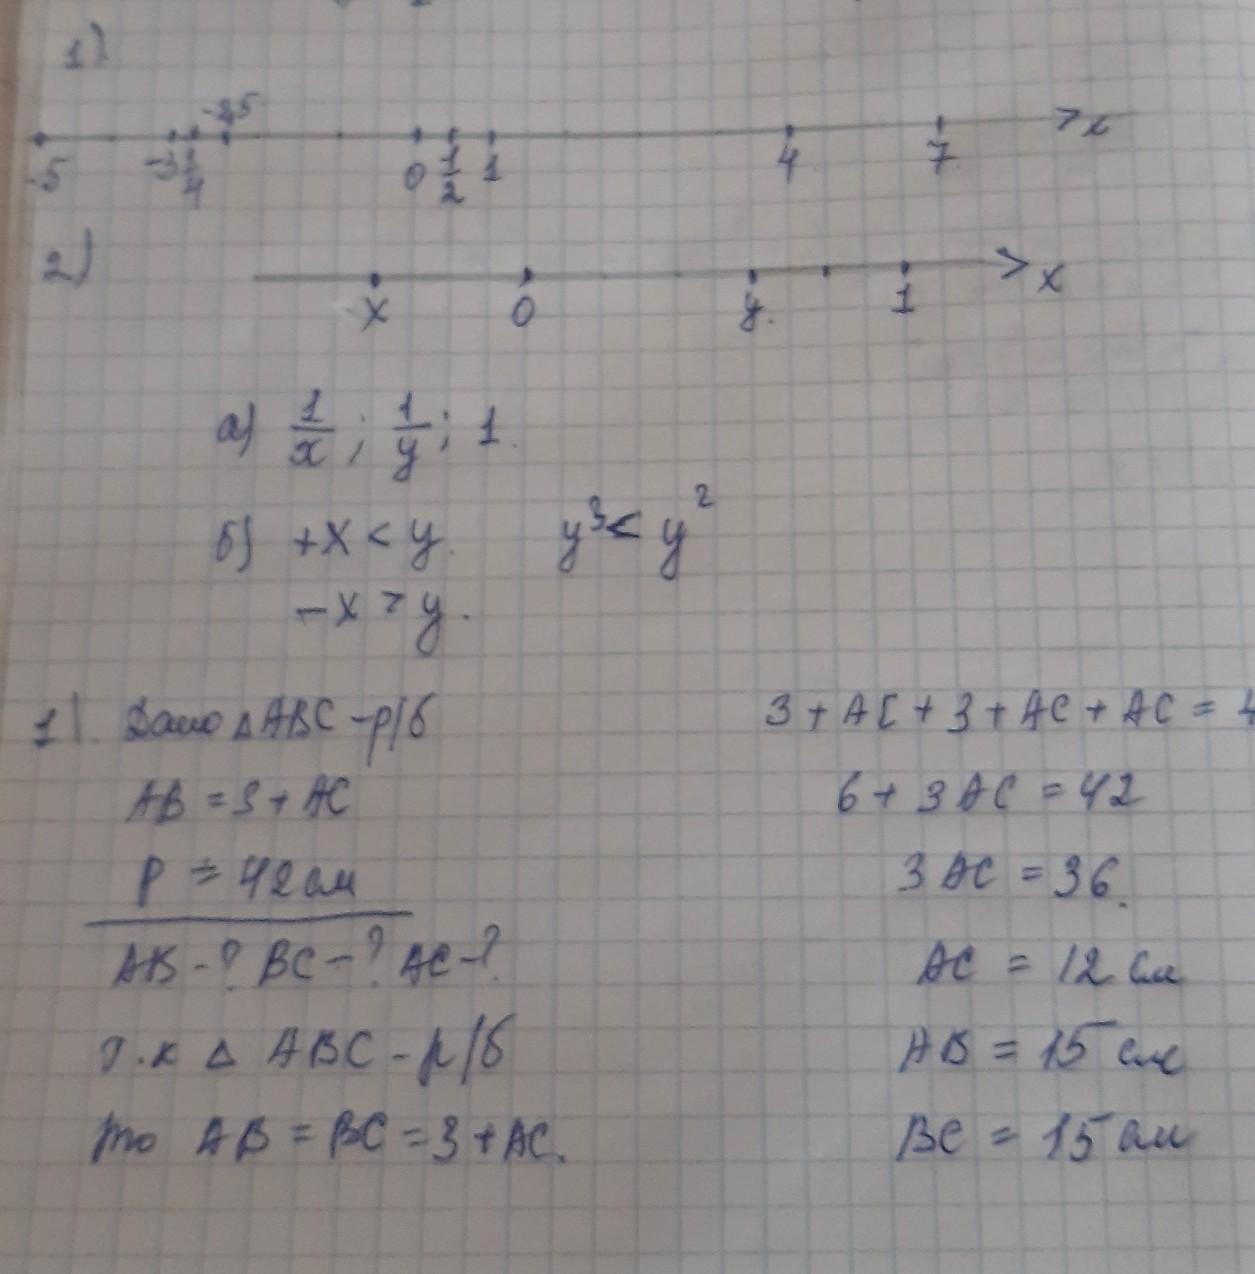 1)
-2,5
-5 -3 1/4 0 1/2 1 4 7 x
2)
x 0 y 1 x
а) 1/x ; 1/y ; 1.
б) +x < y. y³ < y²
-x > y.
1). Дано △ABC - р/б
AB = 3 + AC
P = 42 см
AB - ? BC - ? AC - ?
т.к △ ABC - р/б
то AB = BC = 3 + AC.
3 + AC + 3 + AC + AC = 4
6 + 3 AC = 42
3 AC = 36.
AC = 12 см
AB = 15 см
BC = 15 см